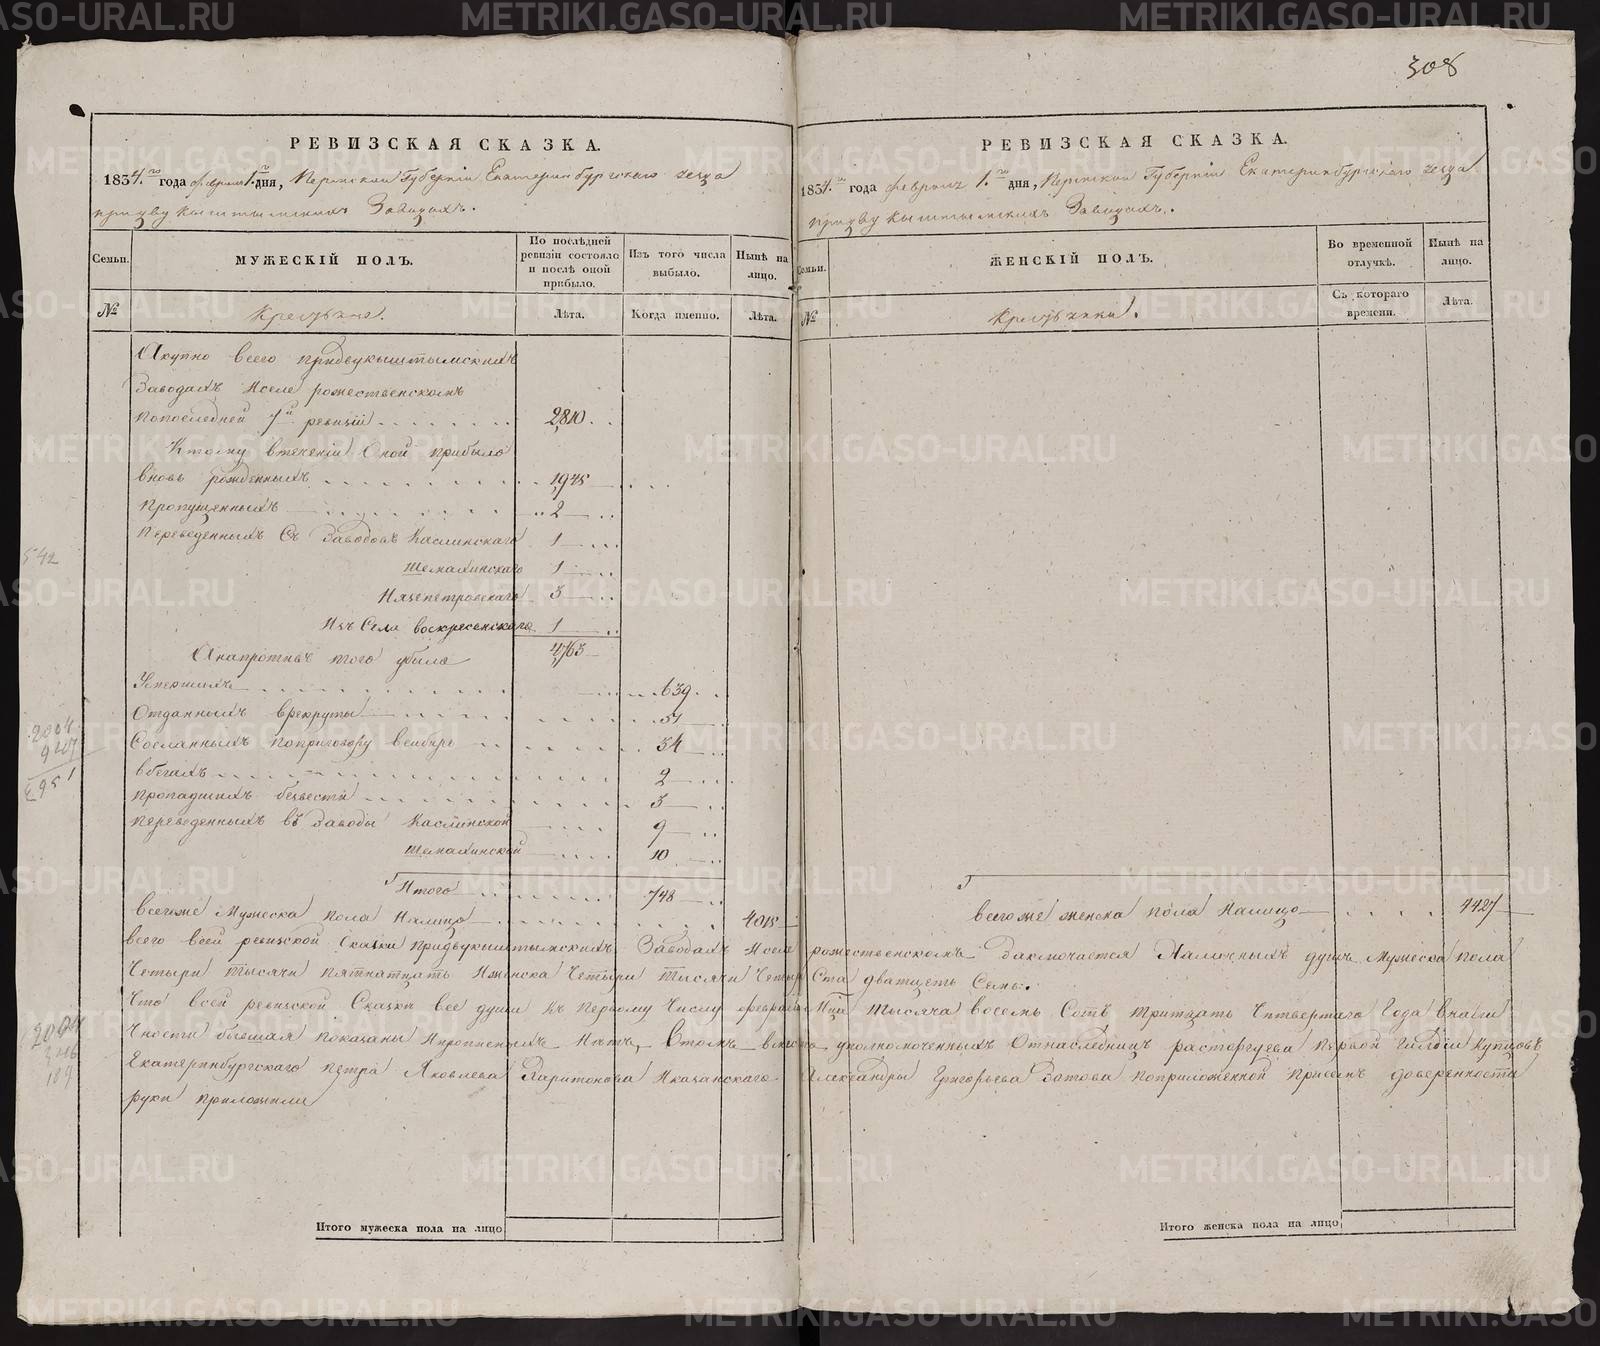 308
РЕВИЗСКАЯ СКАЗКА.
1834.го года февраля 1.го дня, Пермской Губернiи Екатеринбургскаго уезда
придву кыштымскихъ Заводахъ.
Семьи. МУЖЕСКIЙ ПОЛЪ. По послѣдней ревизiи состояло и послѣ оной прибыло. Изъ того числа выбыло. Нынѣ на лицо.
№ Крестьяне. Лѣта. Когда именно. Лѣта.
Акупно всего придвукыштымскихъ
Заводахъ Иселе рожественскомъ
попоследней 7й ревизiи 2810
Ктому втеченiи Оной прибыло
вновь рожденныхъ 1945
Пропущенныхъ 2
Переведенныхъ Съ Заводовъ Каслинскаго 1
Шемахинскаго 1
Нязепетровскаго 3
Изъ Села воскресенскаго 1
4763
Анапротивъ того убыло
Умершихъ 639
Отданныхъ врекруты 51
Сосланныхъ поприговору всибирь 34
вбегахъ 2
пропавшихъ безвести 3
переведенныхъ въ Заводы Каслинской 9
Шемахинской 10
Итого 748
всегоже Мужеска пола Налицо 4015
РЕВИЗСКАЯ СКАЗКА.
1834.го года февраля 1.го дня, Пермской Губернiи Екатеринбургскаго уезда
придву кыштымскихъ Заводахъ.
Семьи. ЖЕНСКIЙ ПОЛЪ. Во временной отлучкѣ. Нынѣ на лицо.
№ Крестьянки. Съ котораго времени. Лѣта.
всегоже женска пола Налицо 4427
всего всей ревизской Сказки придвукыштымскихъ Заводахъ Иселе рожественскомъ Заключается Наличныхъ душъ Мужеска пола
Четыри тысячи пятнатцать Иженска Четыри тысячи Четыре Ста дватцеть Семь.
Что всей ревизской Сказки все души къ первому Числу февраля Мца тысяча восемь Сотъ тритцать Читвертаго Года внали
Чности бывшая показаны Ипрописныхъ Нетъ, Втомъ вместо уполномоченныхъ Отнаследницъ расторгуева первой Гильдiи Купцовъ
Екатеринбургскаго Петра Яковлева Харитонова Иказанскаго Александры Григорьева Зотова поприложенной присемъ доверенности
руки приложили
Итого мужеска пола на лицо
Итого женска пола на лицо
542
2004
METRIKI.GASO-URAL.RU